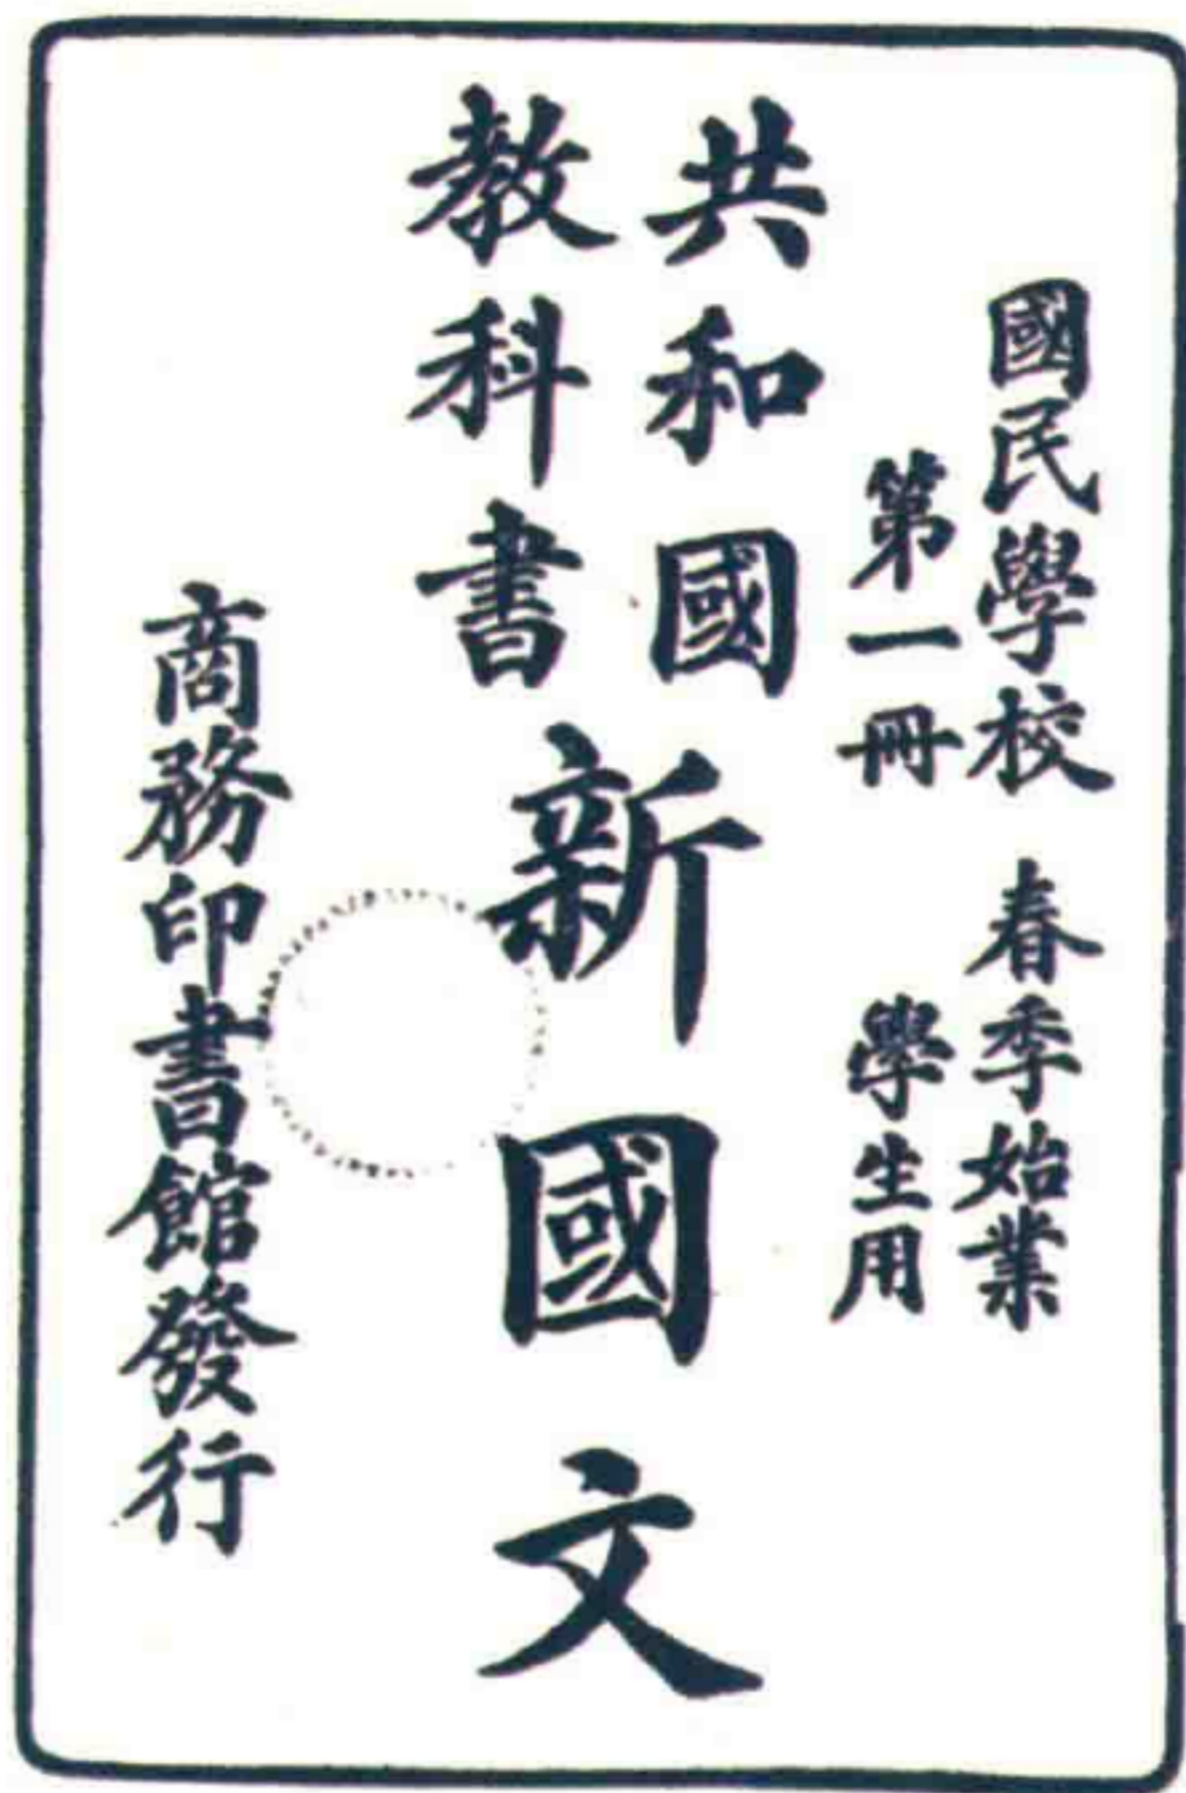 國民學校 春季始業
第一冊 學生用
共和國
教科書
新國文
商務印書館發行